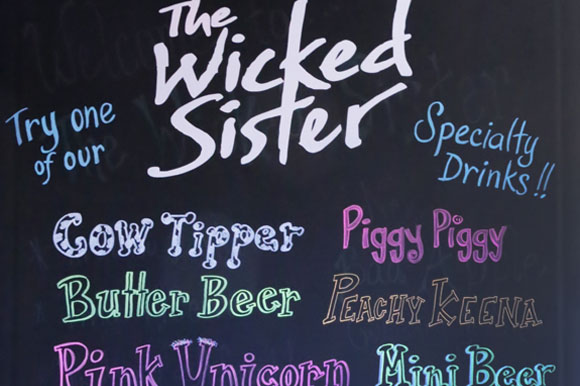 The
Wicked
Sister
Try one
of our
Specialty
Drinks!!
Cow Tipper
Piggy Piggy
Butter Beer
Peachy Keena
Pink Unicorn
Mini Beer